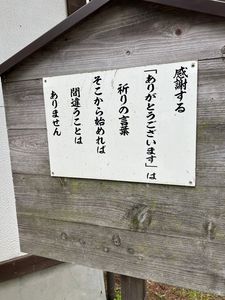 感謝する
「ありがとうございます」は
祈りの言葉
そこから始めれば
間違うことは
ありません